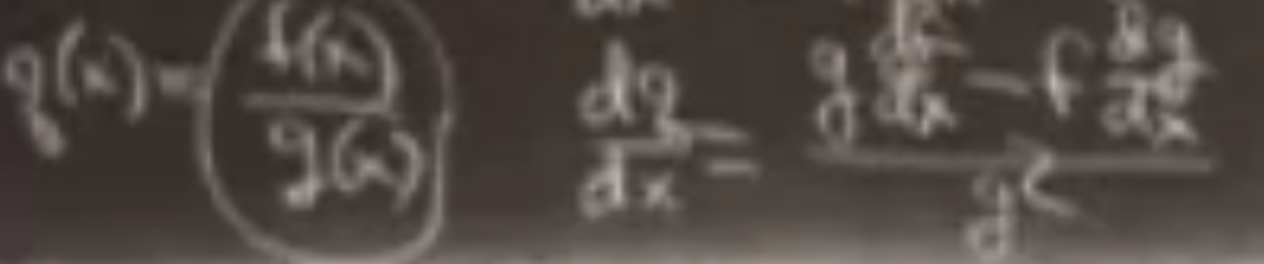 q(x) = f(x)/g(x) dq/dx = (g df/dx - f dg/dx)/g²